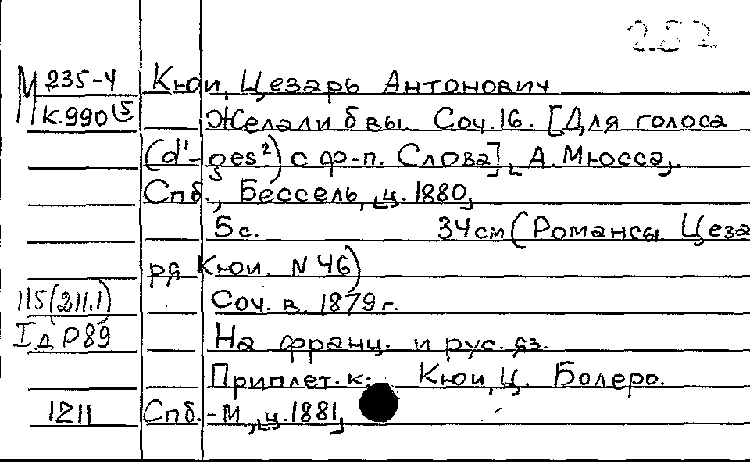 252
М 235-4 Кюи, Цезарь Антонович
К.990 Желали б вы. Соч.16. [Для голоса
(d'-ges²) с ф-п. Слова] А. Мюссэ,.
Спб., Бессель, ц. 1880,
5 с. 34 см (Романсы Цеза
ря Кюи. N 46)
115(211.1) Соч. в 1879 г.
I д Р89 На франц. и рус. яз.
Приплет. к: Кюи, Ц. Болеро.
1211 Спб.-М., ц. 1881,